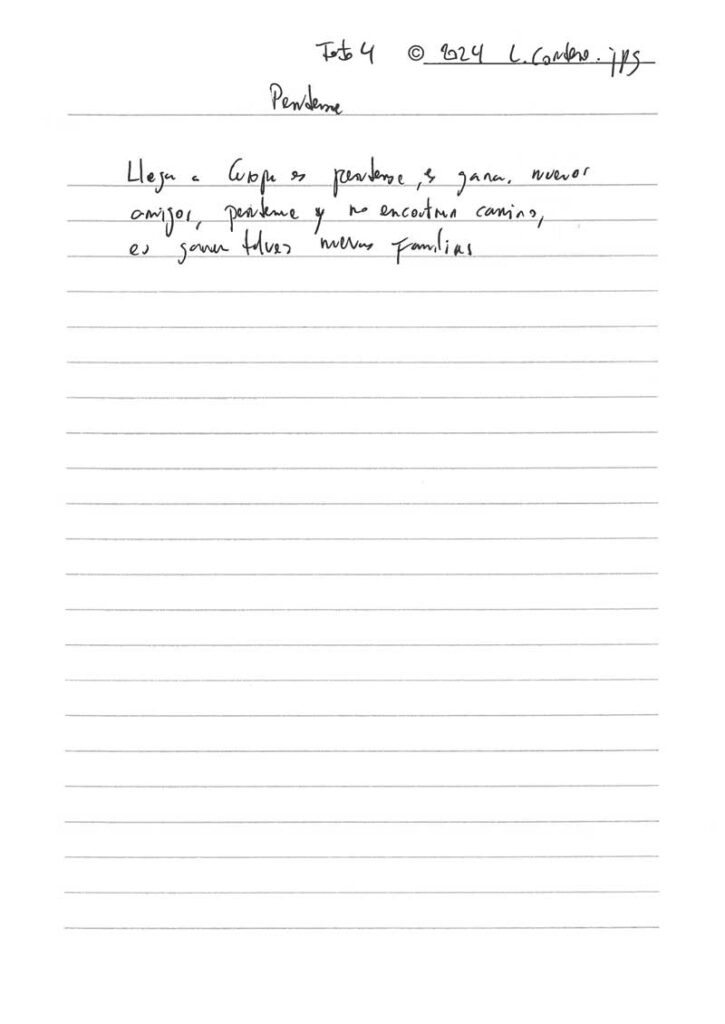 Foto 4 © 2024 L. Cordero.jpg
Perderme
Llegar a Europa es perderse, es ganar nuevos
amigos, perderme y no encontrar camino,
es ganar talvez nuevas familias